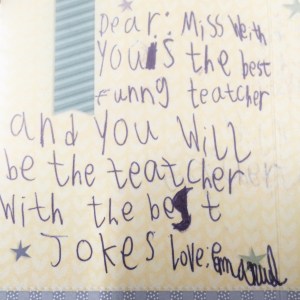 Dear: Miss Weith
Yous the best
funng teatcher
and you will
be the teatcher
with the best
Jokes Love: Emanuel